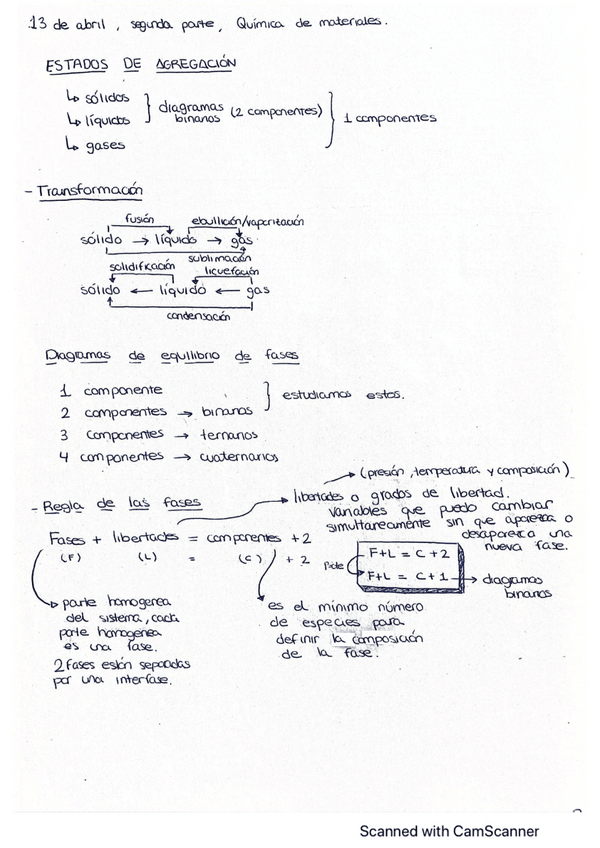 13 de abril, segunda parte, Química de materiales.
ESTADOS DE AGREGACIÓN
↳ sólidos
↳ líquidos
↳ gases
diagramas binarios (2 componentes)
1 componentes
- Transformación
fusión ebullición/vaporización
sólido → líquido → gas
sublimación
solidificación licuefacción
sólido ← líquido ← gas
condensación
Diagramas de equilibrio de fases
1 componente
2 componentes → binarios
estudiamos estos.
3 componentes → ternarios
4 componentes → cuaternarios
- Regla de las fases
Fases + libertades = componentes + 2
(F) (L) = (C) + 2
→ (presión, temperatura y composición)
libertades o grados de libertad.
Variables que puedo cambiar
simultareamente sin que aparezca o
desaparezca una
nueva fase.
F+L = C+2
F+L = C+1 → diagramas
binarios
parte homogenea
del sistema, cada
parte homogenea
es una fase.
2 fases están separadas
por una interfase.
es el mínimo número
de especies para
definir la composición
de la fase.
Scanned with CamScanner